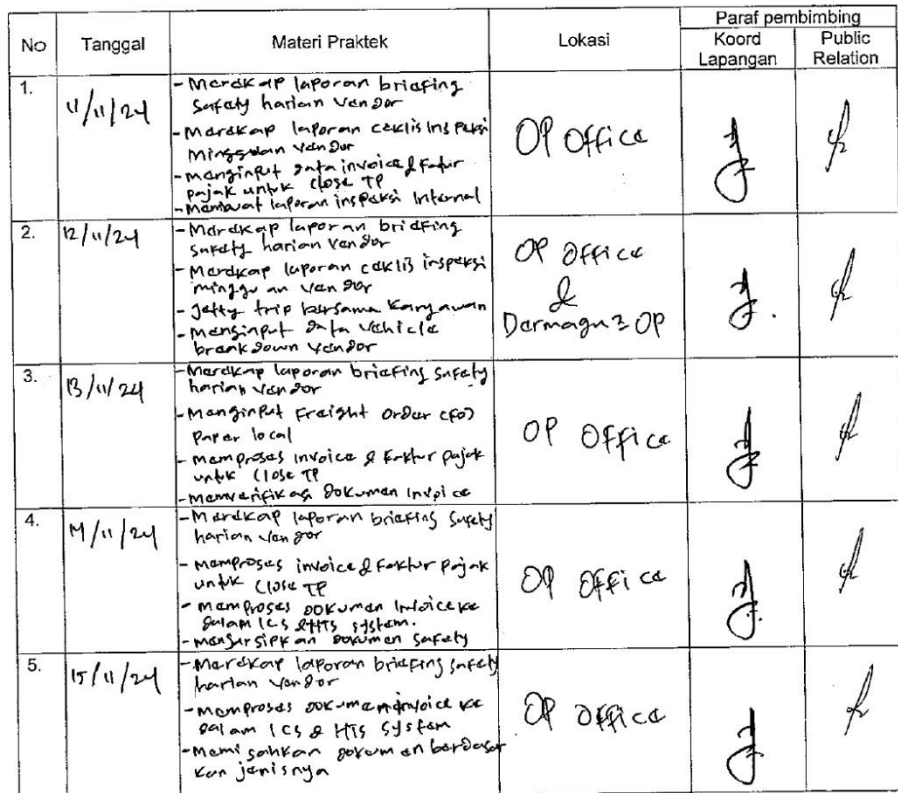 No Tanggal Materi Praktek Lokasi Paraf pembimbing
Koord Lapangan Public Relation
1. 11/11/24
- Merekap laporan briefing
safety harian vendor
- Merekap laporan ceklis inspeksi
Mingguan vendor
- Menginput data invoice & Faktur
pajak untuk close TP
- Membuat laporan inspeksi Internal
OP Office
2. 12/11/24
- Merekap laporan briefing
safety harian vendor
- Merekap laporan ceklis inspeksi
minggu an vendor
- Jetty trip bersama karyawan
- Menginput data vehicle
breakdown vendor
OP Office
&
Dermaga 3 OP
3. 13/11/24
- Merekap laporan briefing safety
harian vendor
- Menginput Freight Order (FO)
paper local
- Memproses invoice & Faktur pajak
untuk close TP
- Memverifikasi dokumen Invoice
OP Office
4. 14/11/24
- Merekap laporan briefing safety
harian vendor
- Memproses invoice & Faktur pajak
untuk close TP
- Memproses dokumen Invoice ke
dalam ICS & HTS system.
- Mengarsipkan dokumen safety
OP Office
5. 15/11/24
- Merekap laporan briefing safety
harian vendor
- Memproses dokumen invoice ke
dalam ICS & HTS system
- Memisahkan dokumen berdasar
kan jenisnya
OP Office